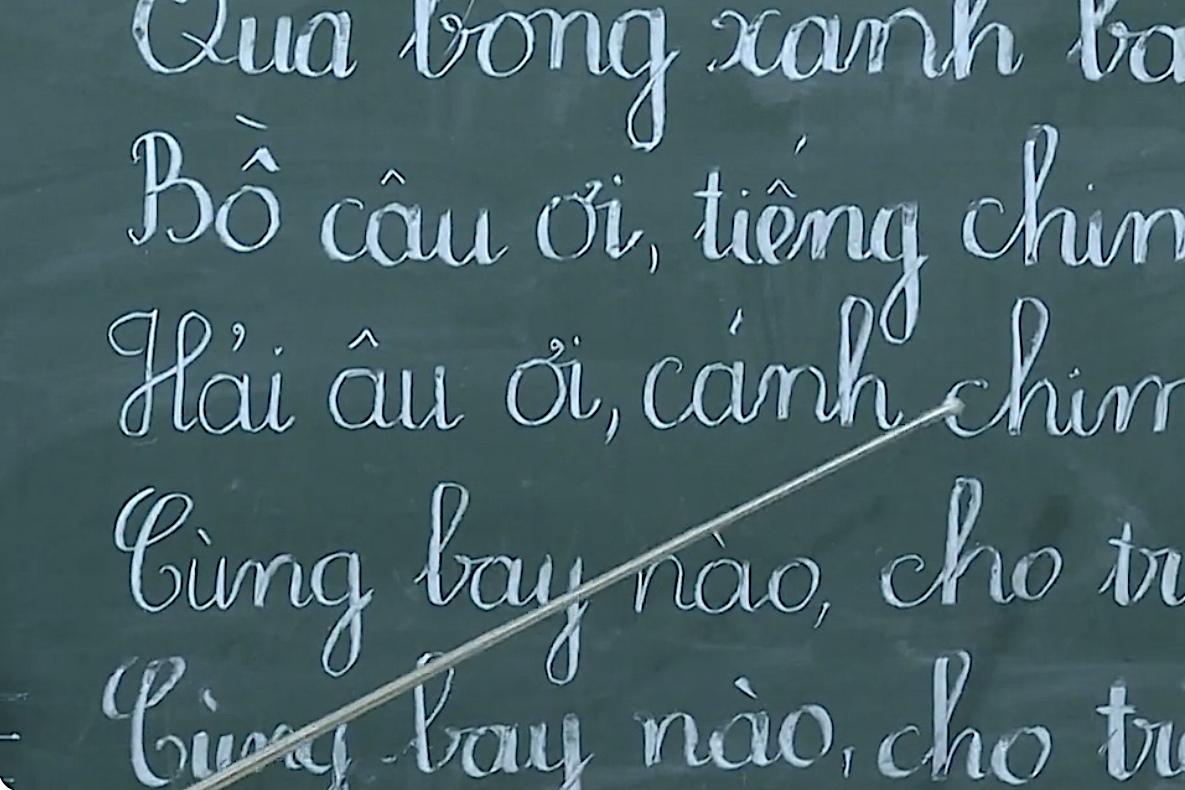 Qua bóng xanh
Bồ câu ơi, tiếng chim
Hải âu ơi, cánh chim
Cùng bay nào, cho
Cùng bay nào, cho